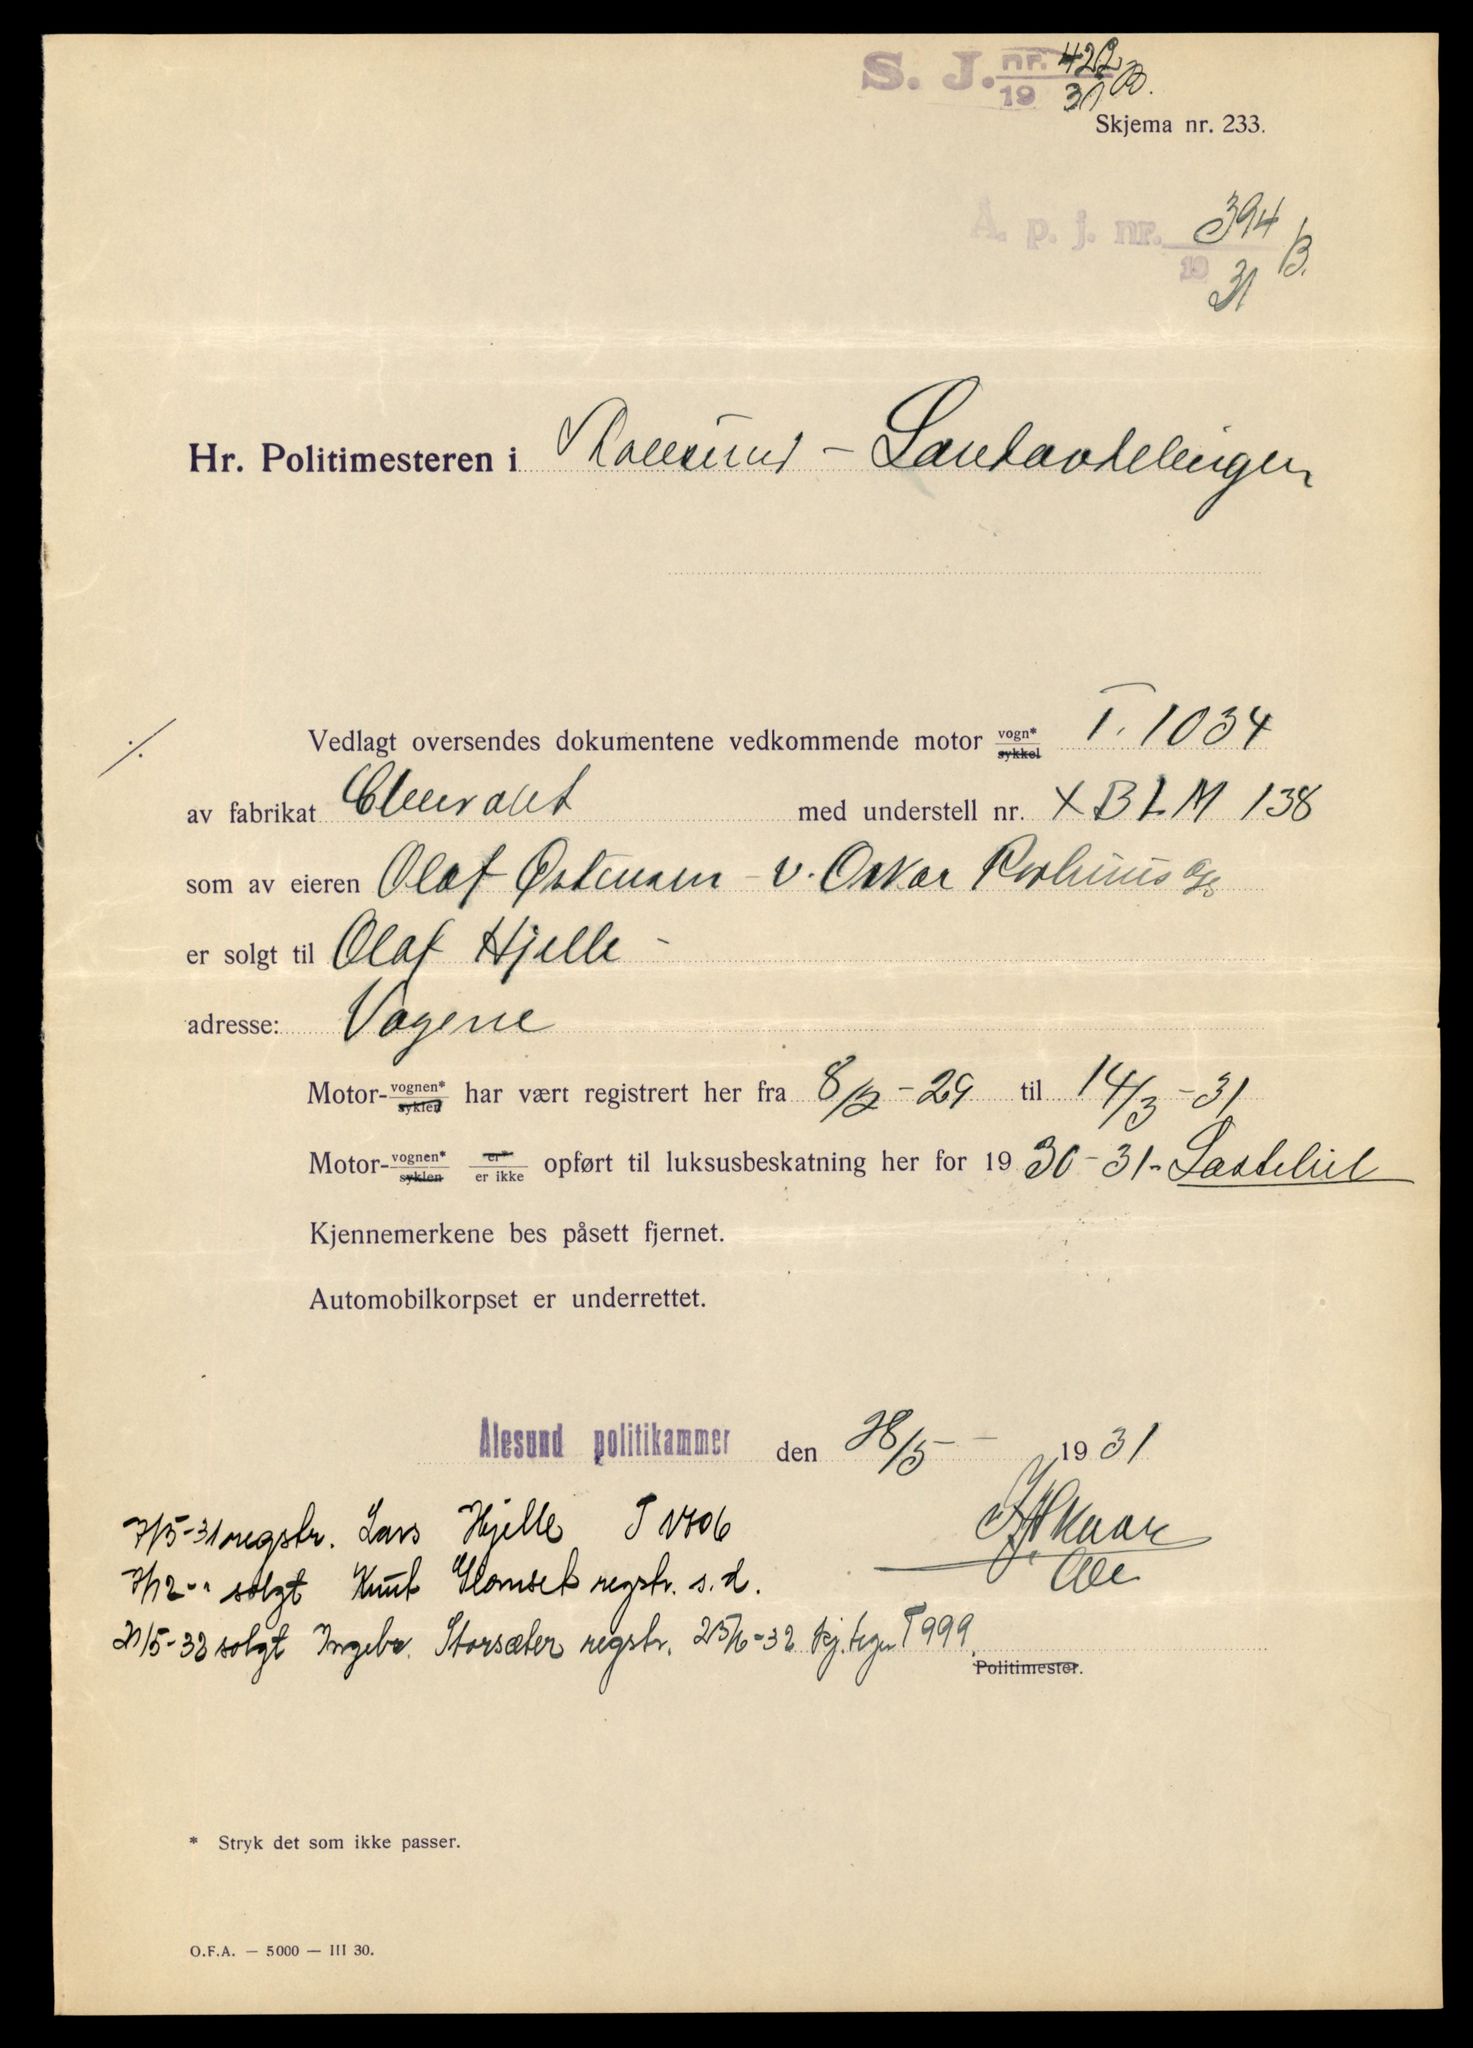 S. J. nr. 422 B.
19 31
Skjema nr. 233.
Å. p. j. nr. 394 B.
19 31
Hr. Politimesteren i Aalesund - Landavdelingen
./.
Vedlagt oversendes dokumentene vedkommende motor vogn* sykkel T. 1034
av fabrikat Chevrolet med understell nr. XBLM 138
som av eieren Olaf Østensen - v. Oskar
er solgt til Olaf Hjelle -
adresse: Vågene
Motor- vognen* syklen har vært registrert her fra 8/2 - 29 til 14/3 - 31
Motor- vognen* syklen er* er ikke opført til luksusbeskatning her for 19 30 - 31 - Lastebil
Kjennemerkene bes påsett fjernet.
Automobilkorpset er underrettet.
Ålesund politikammer den 28/5 - 1931
7/5-31 regstr. Lars Hjelle T 1406
7/12 - " solgt Knut Glomset regstr. s. d.
21/5-32 solgt Ingebr. Storsæter regstr. 25/6-32 kj. tegn T 999.
Politimester.
* Stryk det som ikke passer.
O.F.A. — 5000 — III 30.